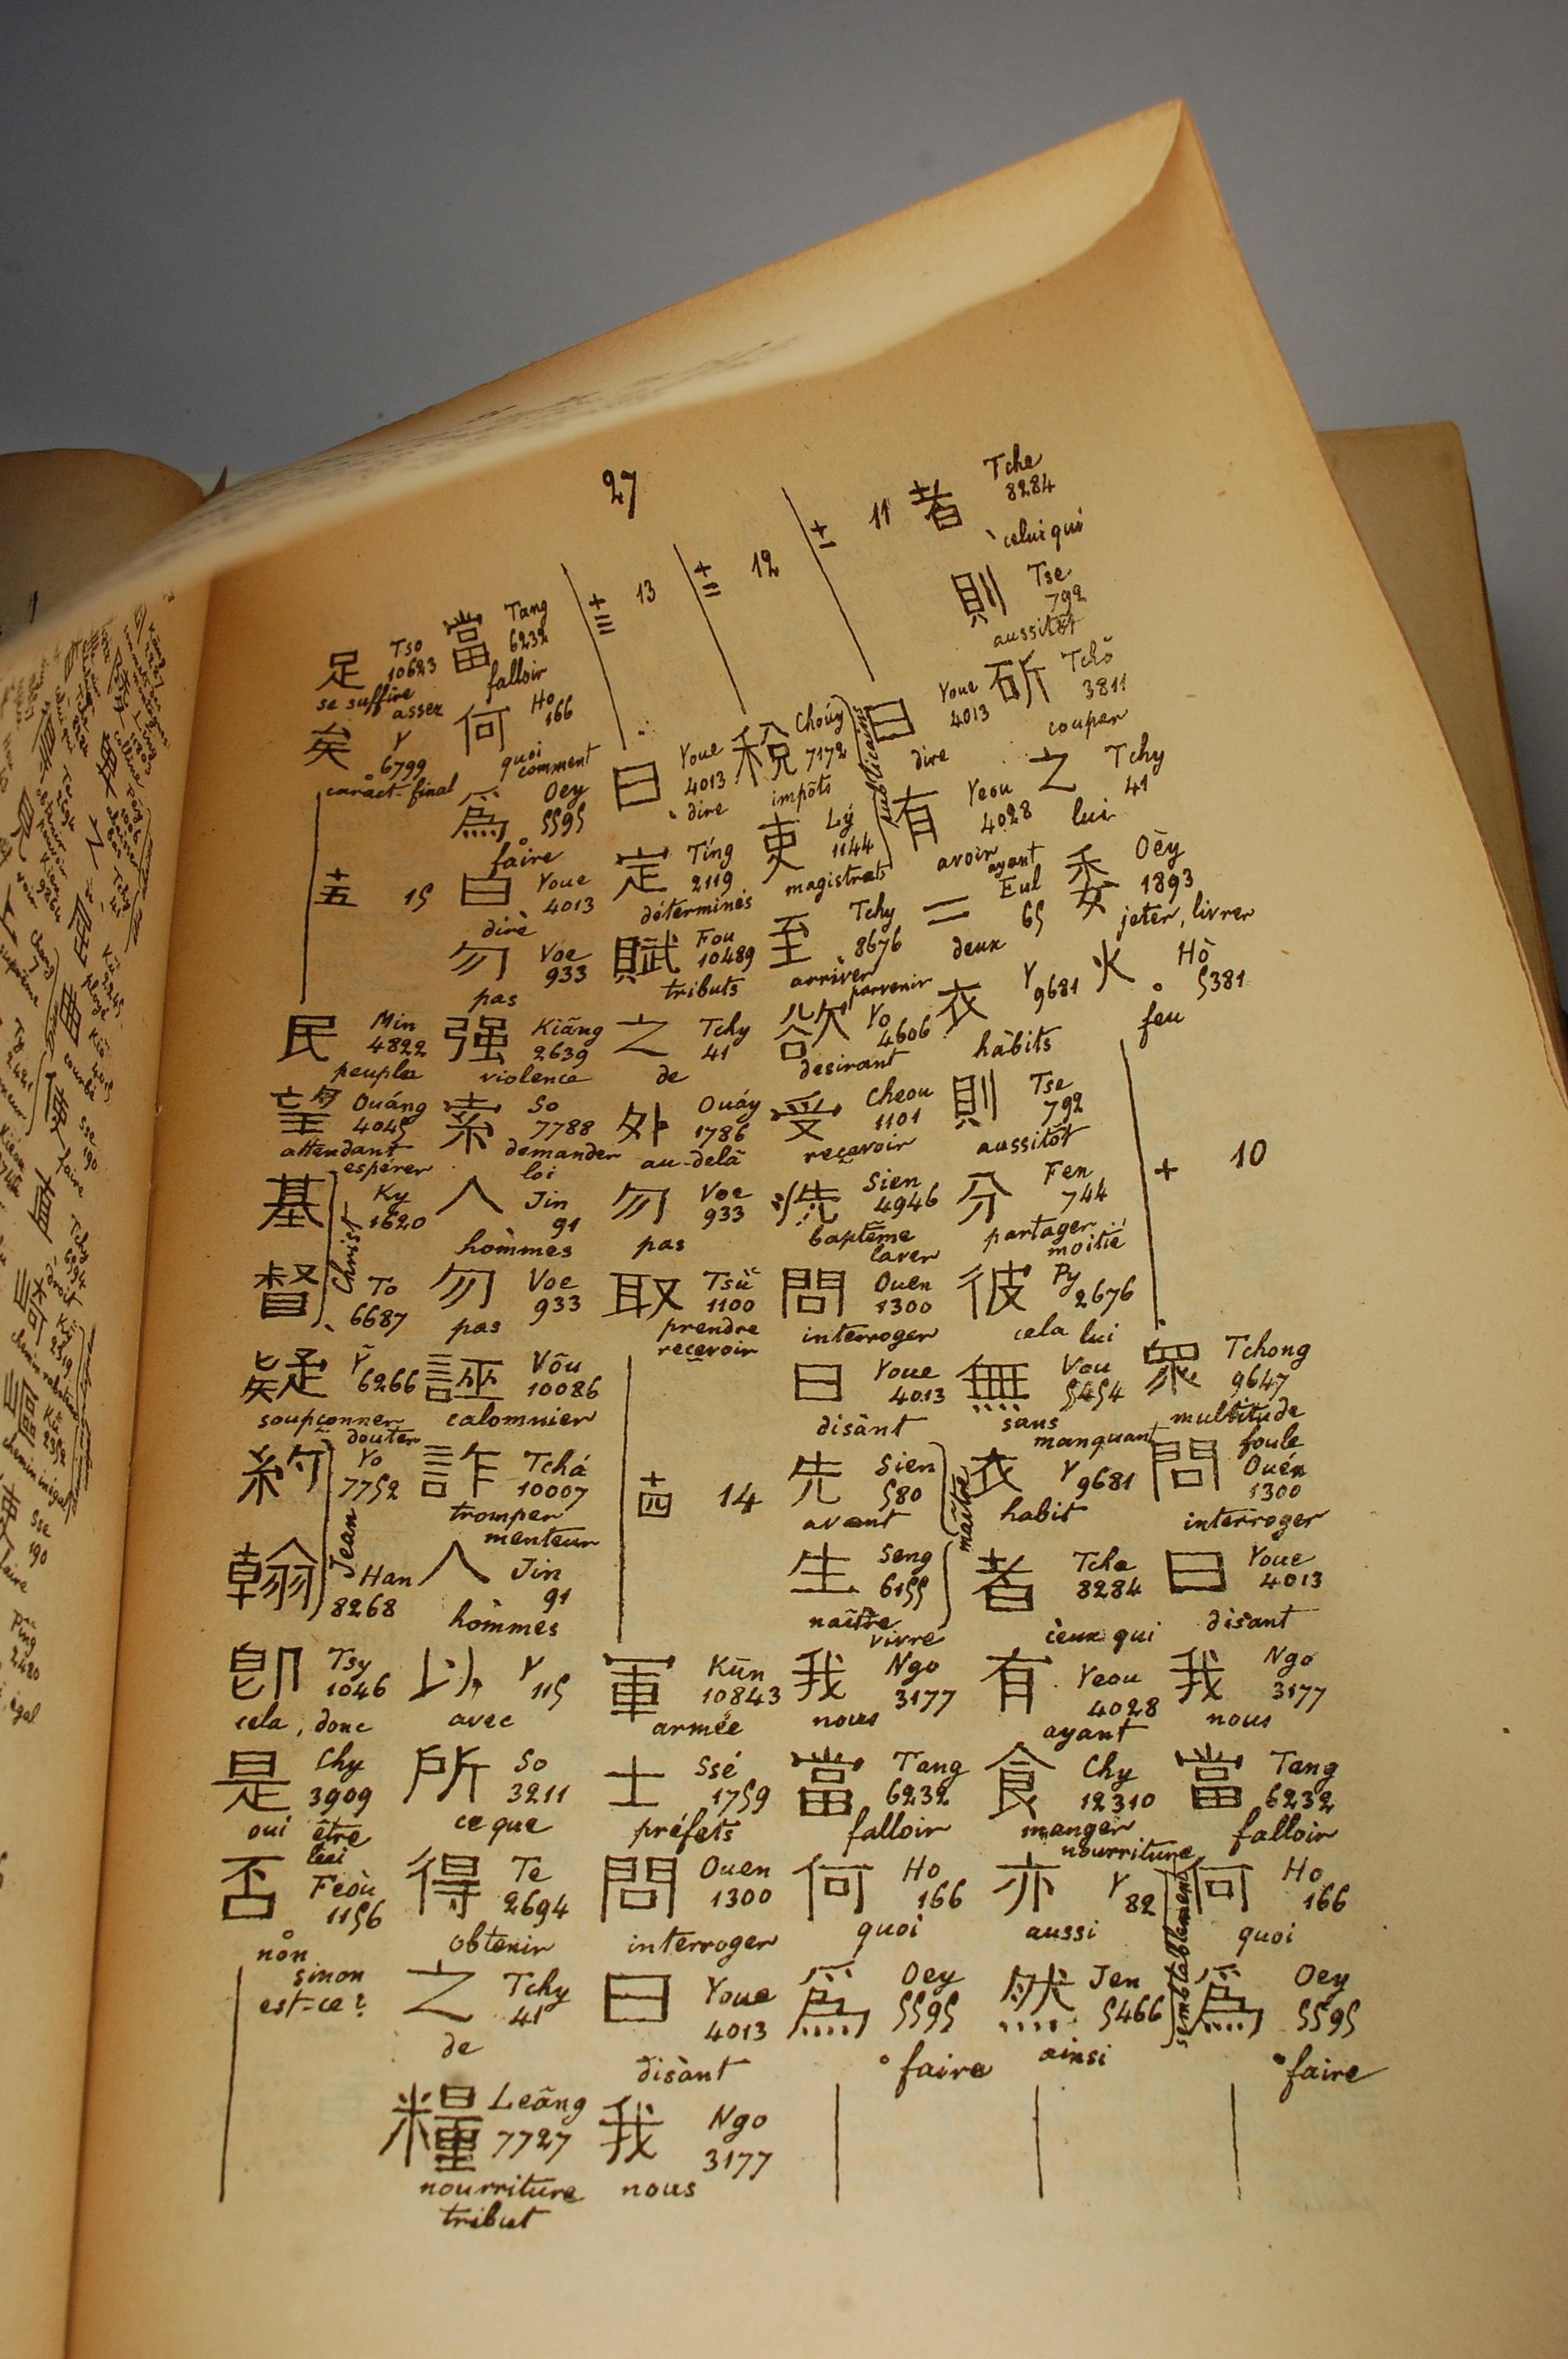 27
者 Tche
8284
celui qui
則 Tse
792
aussitôt
斫 Tchŏ
3811
couper
之 Tchy
41
lui
委 Oèy
1893
jeter, livrer
火 Hò
5381
feu
十 10
眾 Tchong
9647
multitude
foule
問 Ouén
1300
interroger
曰 Youe
4013
disant
我 Ngo
3177
nous
當 Tang
6232
falloir
何 Ho
166
quoi
爲 Oey
5595
faire
十一 11
曰 Youe
4013
dire
有 Yeou
4028
avoir
ayant
二 Eul
65
deux
衣 Y
9681
habits
則 Tse
792
aussitôt
分 Fen
744
partager
moitié
彼 Py
2676
cela lui
無 Vou
5454
sans
manquant
衣 Y
9681
habit
者 Tche
8284
ceux qui
有 Yeou
4028
ayant
食 Chy
12310
manger
nourriture
亦 Y
82
aussi
然 Jen
5466
ainsi
semblablement
十二 12
稅 Choúy
7172
impôts
吏 Lý
1144
magistrats
publicains
至 Tchy
8676
arriver
parvenir
欲 Yo
4606
desirant
受 Cheou
1101
recevoir
洗 Sien
4946
baptême
laver
問 Ouen
1300
interroger
曰 Youe
4013
disant
先 Sien
580
avant
生 Seng
6155
naître
vivre
maître
我 Ngo
3177
nous
當 Tang
6232
falloir
何 Ho
166
quoi
爲 Oey
5595
faire
十三 13
曰 Youe
4013
dire
定 Tíng
2119
déterminés
賦 Fou
10489
tributs
之 Tchy
41
de
外 Ouáy
1786
au-delà
勿 Voe
933
pas
取 Tsŭ
1100
prendre
recevoir
十四 14
軍 Kūn
10843
armée
士 Ssé
1759
préfets
問 Ouen
1300
interroger
曰 Youe
4013
disant
我 Ngo
3177
nous
當 Tang
6232
falloir
何 Ho
166
quoi
comment
爲 Oey
5595
faire
曰 Youe
4013
dire
勿 Voe
933
pas
强 Kiāng
2639
violence
索 So
7788
demander
loi
人 Jin
91
hommes
勿 Voe
933
pas
誣 Vōu
10086
calomnier
詐 Tchá
10007
tromper
menteur
人 Jin
91
hommes
以 Y
115
avec
所 So
3211
ce que
得 Te
2694
obtenir
之 Tchy
41
de
糧 Leāng
7727
nourriture
tribut
足 Tso
10623
se suffire
assez
矣 Y
6799
caract. final
十五 15
民 Min
4822
peuple
望 Ouáng
4045
attendant
espérer
基 Ky
1620
督 To
6687
Christ
疑 Y
6266
soupçonner
douter
約 Yo
7752
翰 Han
8268
Jean
卽 Tsy
1046
cela, donc
是 Chy
3909
oui être
否 Feòu
1156
non
sinon
est-ce?